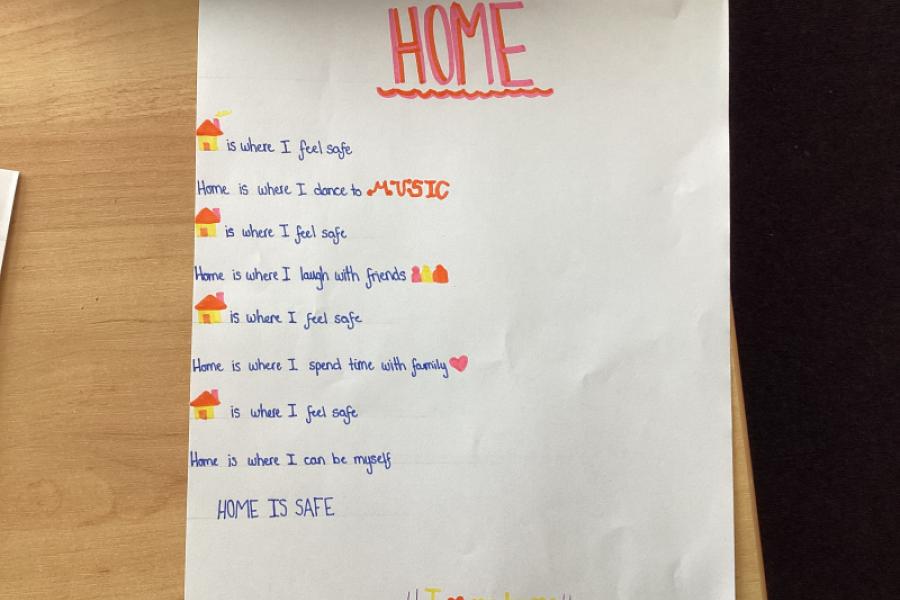 HOME
is where I feel safe
Home is where I dance to MUSIC
is where I feel safe
Home is where I laugh with friends
is where I feel safe
Home is where I spend time with family
is where I feel safe
Home is where I can be myself
HOME IS SAFE
"I